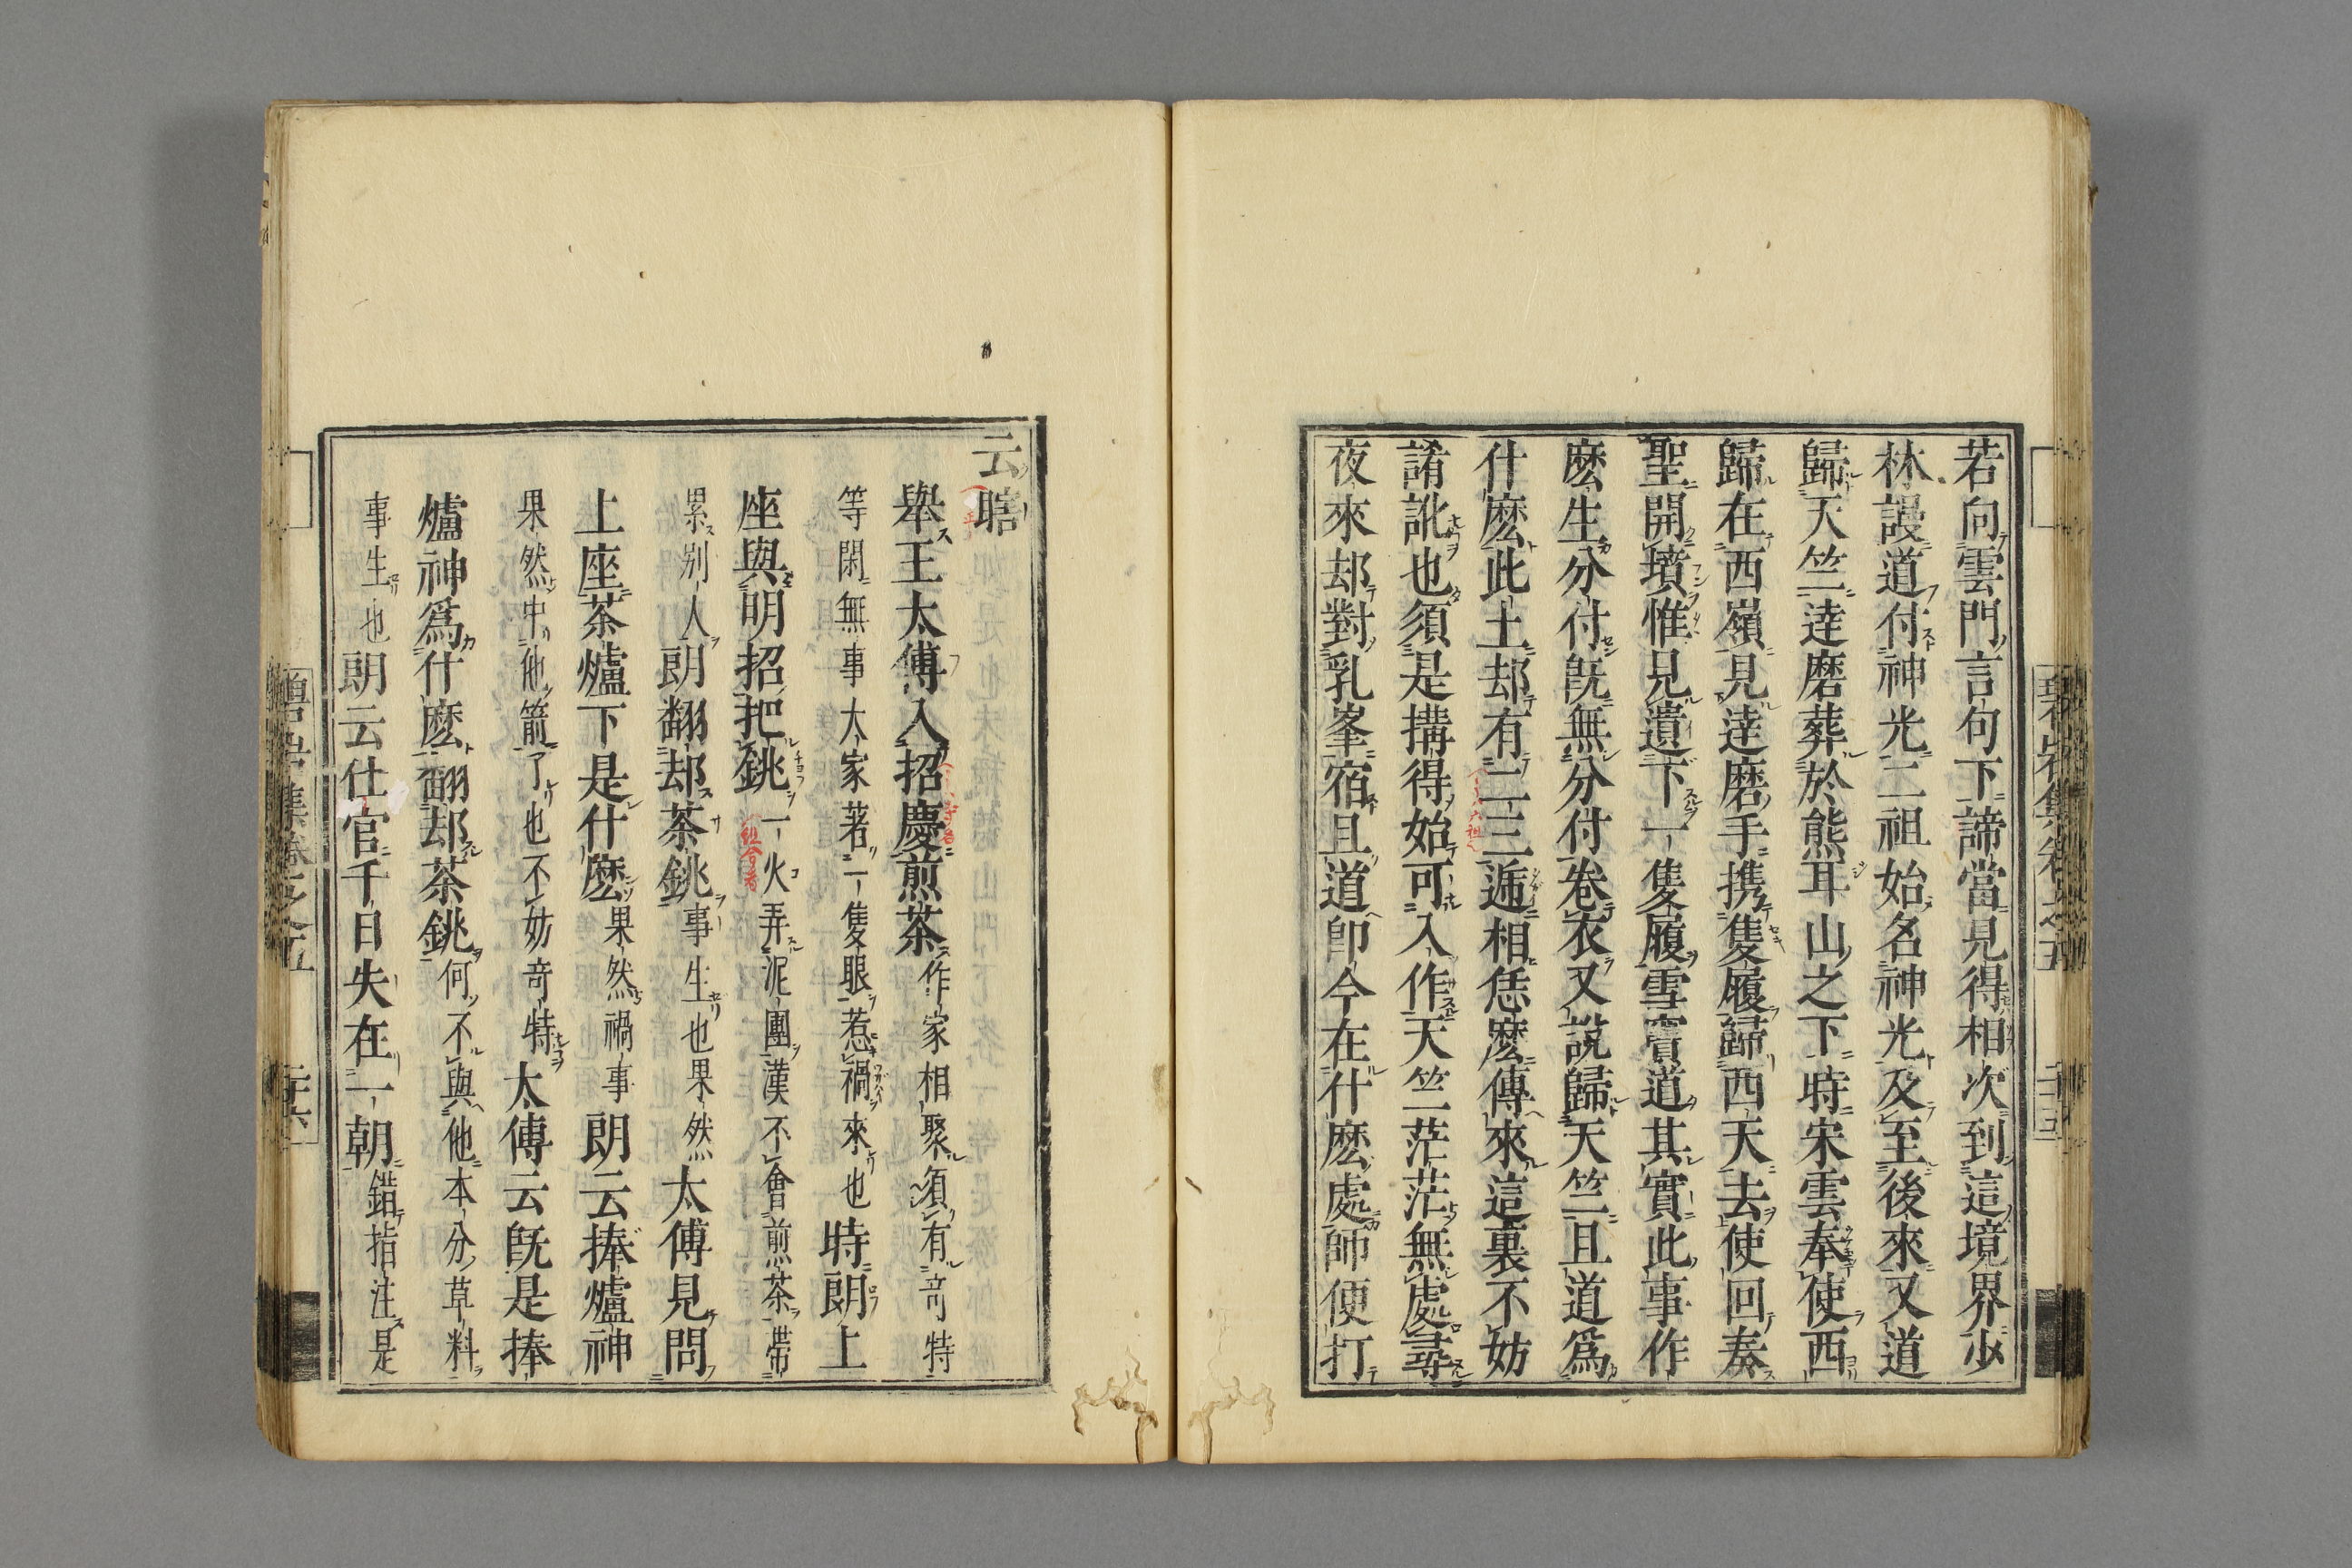 若向雲門言句下諦當見得相次到這境界少
林謾道付神光二祖始名神光及至後來又道
歸天竺逹磨葬於熊耳山之下時宋雲奉使西
歸在西嶺見逹磨手携隻履歸西天去使回奏
聖開墳惟見遺下一隻履雪竇道其實此事作
麽生分付旣無分付卷衣又說歸天竺且道爲
什麽此土却有二三遞相恁麽傳來這裏不妨
誵訛也須是搆得始可入作天竺茫茫無處尋
夜來却對乳峯宿且道卽今在什麽處師便打
云瞎
舉王太傅入招慶煎茶作家相聚須有竒特
等閑無事大家著一隻眼惹禍來也時朗上
座與明招把銚一火弄泥團漢不會煎茶帶
累别人朗翻却茶銚事生也果然太傅見問
上座茶爐下是什麽果然禍事朗云捧爐神
果然中他箭了也不妨竒特太傅云旣是捧
爐神爲什麽翻却茶銚何不與他本分草料
事生也朗云仕官千日失在一朝錯指注是